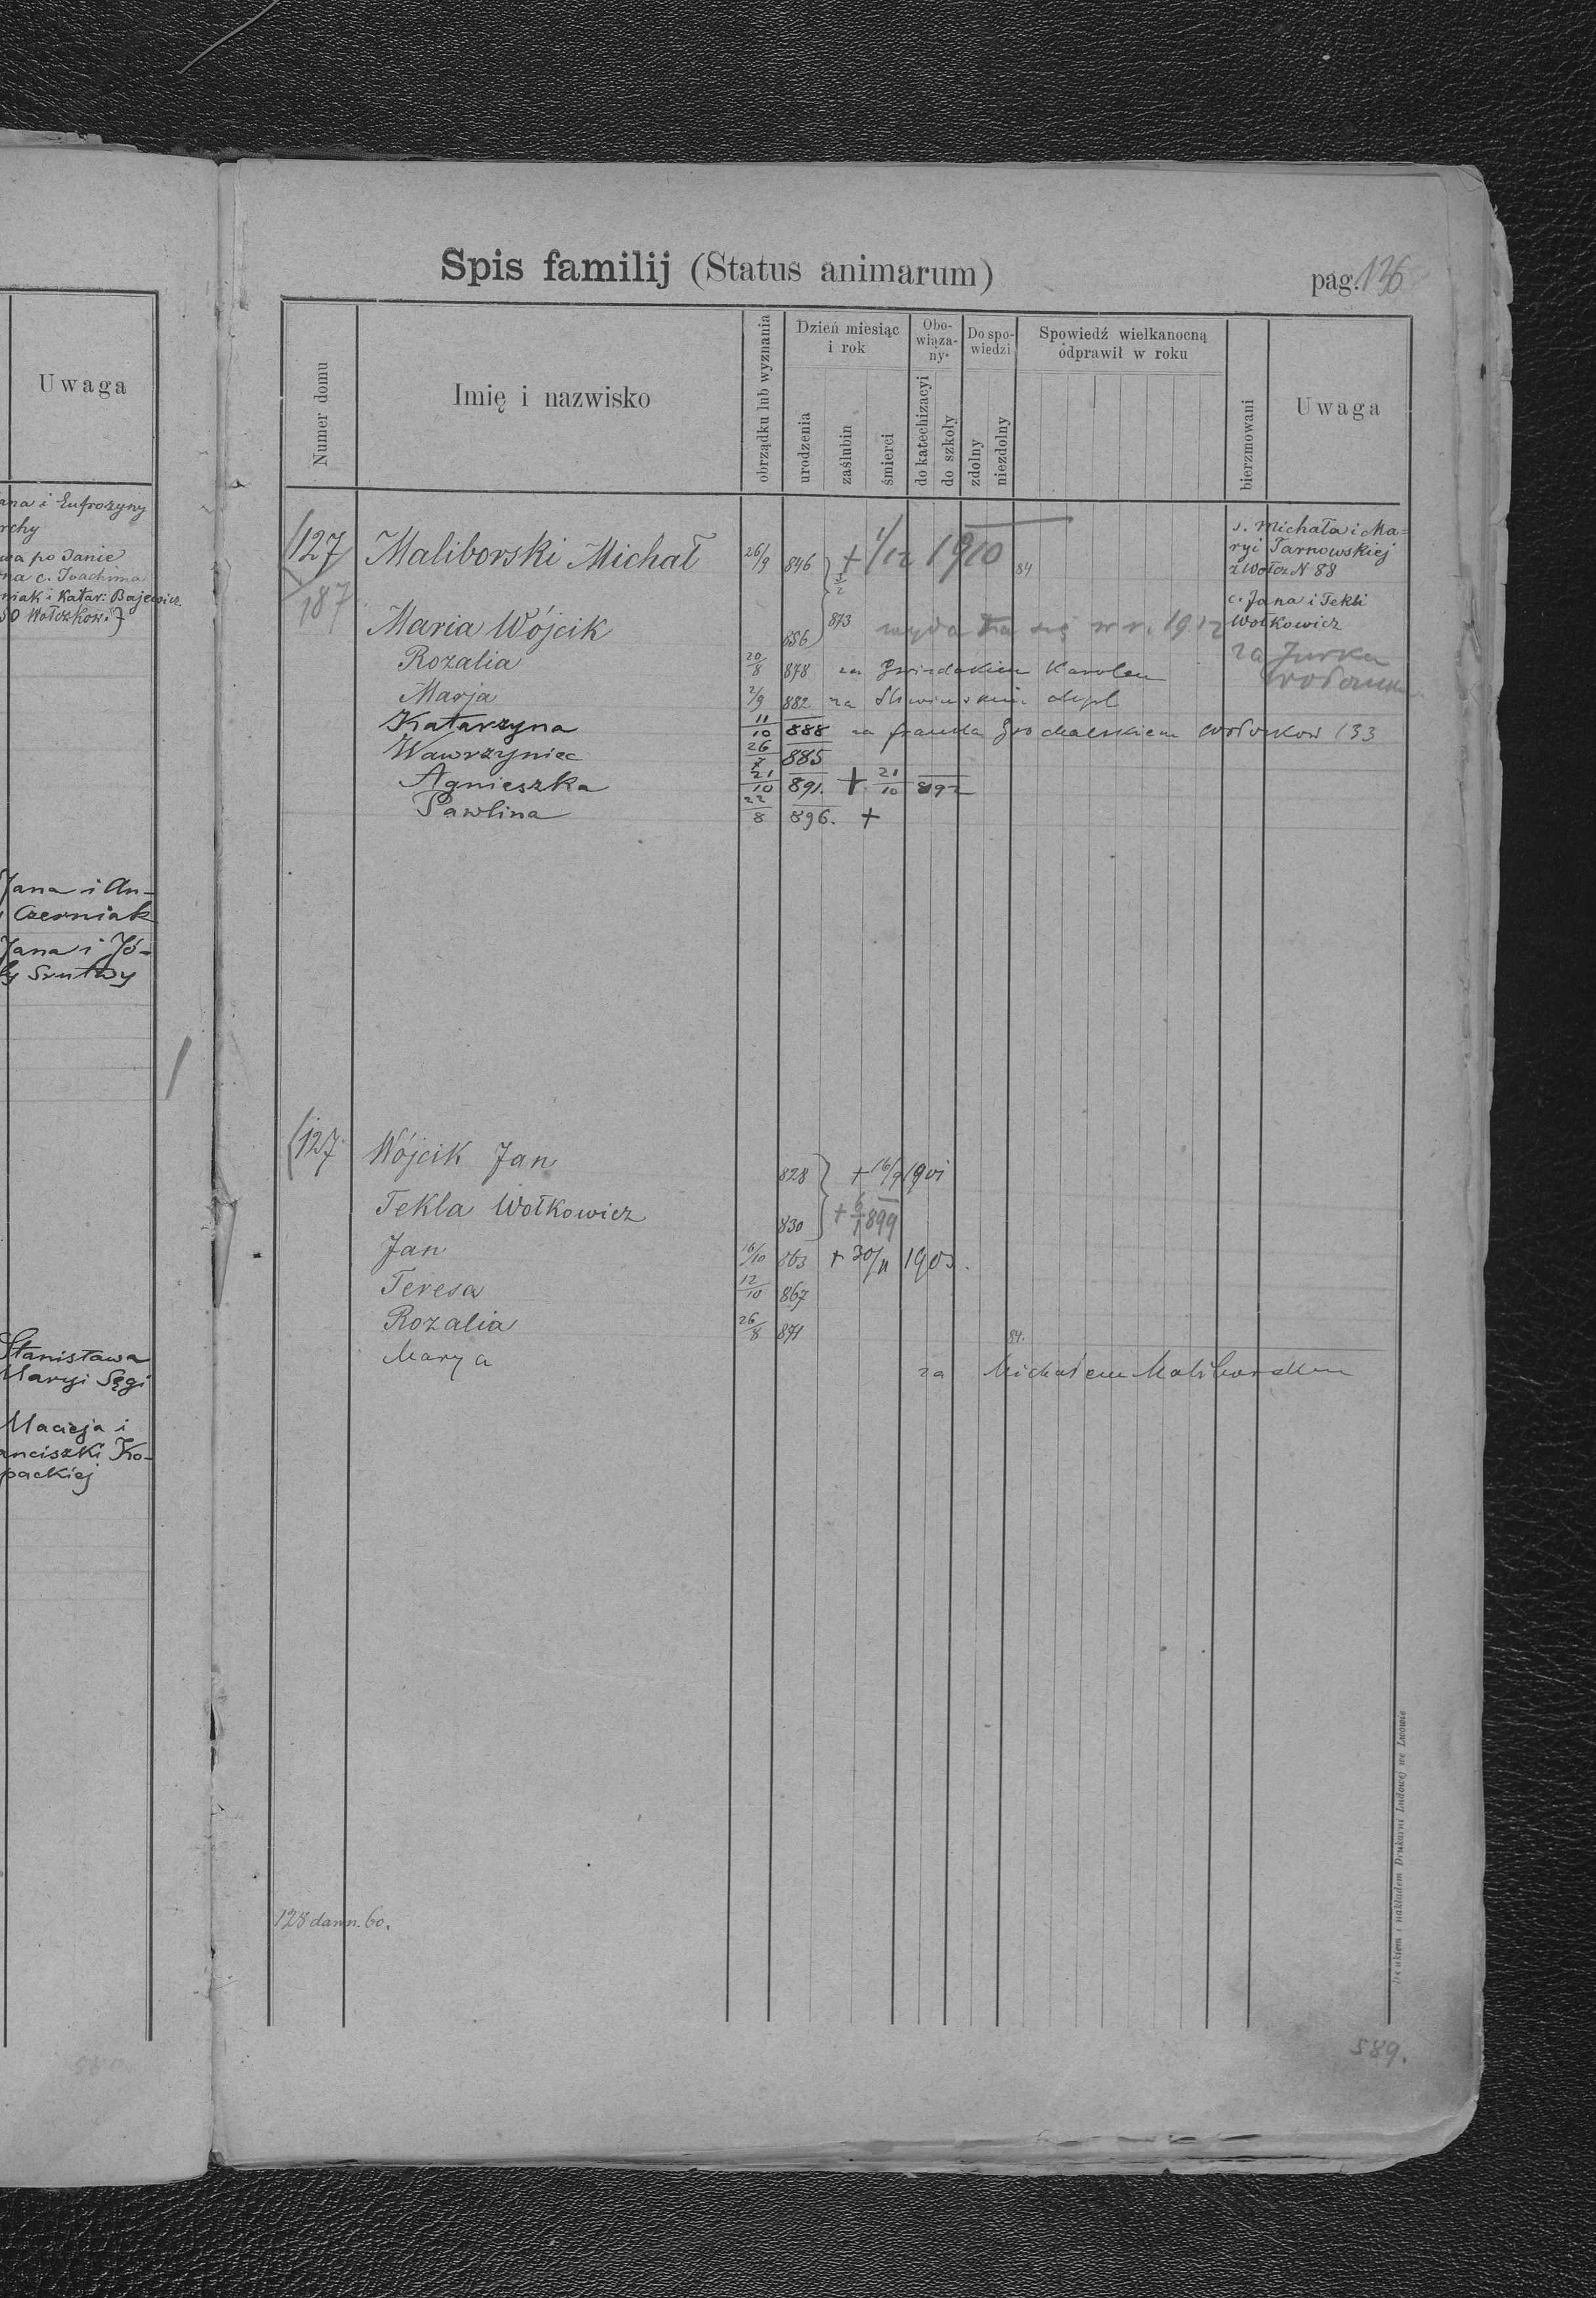 Uwaga
ana i Eufrozyny
rchy
wa po Janie
na c. Joachima
niak i Katar: Bajewicz
50 Wołczkow:}
Jana i An-
Czerniak
Jana i Jó-
Stanisława
Maryi Sęgi
Macieja i
anciszki Ko-
packiej
Spis familij (Status animarum)
pag. 136
Numer domu
Imię i nazwisko
obrządku lub wyznania
Dzień miesiąc i rok
urodzenia
zaślubin
śmierci
Obo-wiąza-ny·
do katechizacyi
do szkoły
Do spo-wiedzi
zdolny
niezdolny
Spowiedź wielkanocną odprawił w roku
bierzmowani
Uwaga
127 Maliborski Michał 26/9 846 + 1/12 1910 84 s. Michała i Ma=
ryi Tarnowskiej
z Wołcz N 88
187
Maria Wójcik 856 873 wydała się w r. 1912 c. Jana i Tekli
Wołkowicz
Rozalia 20/8 878 za Karolem za Jurka
Marja 2/9 882 za
Katarzyna 11/10 888 za 133
Wawrzyniec 26/7 885
Agnieszka 21/10 891. + 21/10 892
Pawlina 22/8 896. +
127 Wójcik Jan 828 + 16/9 1901
Tekla Wołkowicz 830 + 6/1 899
Jan 16/10 863 + 30/11 1903.
Teresa 12/10 867
Rozalia 26/8 871 84.
Marya za Michałem Maliborskim
128 dawn. 60.
Drukiem i nakładem Drukarni Ludowej we Lwowie
589.